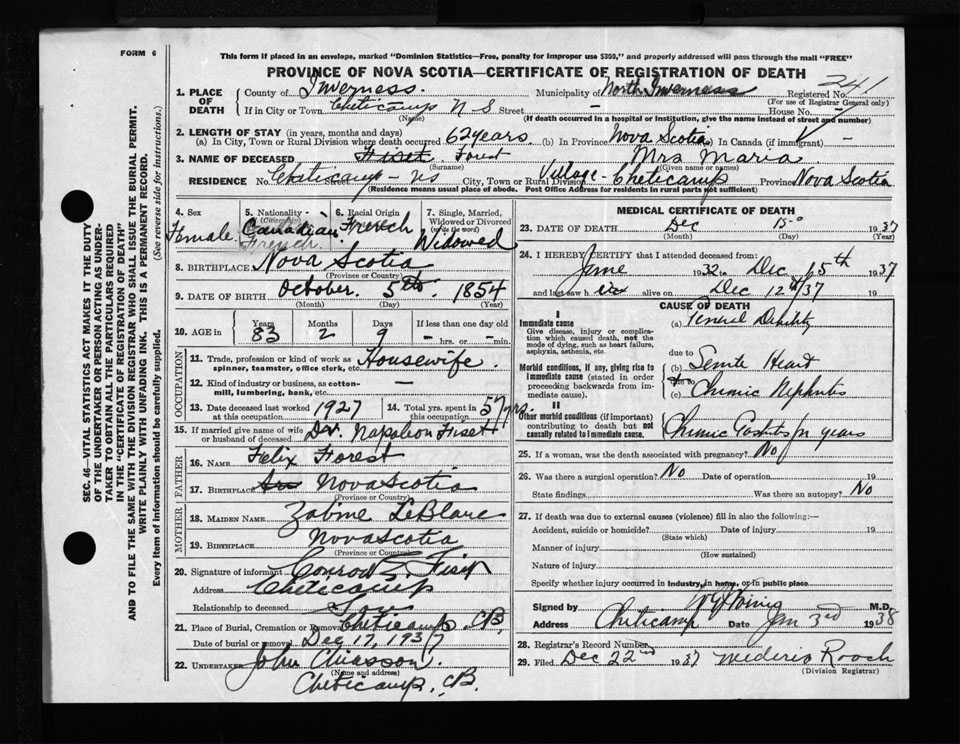 FORM 6
This form if placed in an envelope, marked "Dominion Statistics—Free, penalty for improper use $300," and properly addressed will pass through the mail "FREE"
PROVINCE OF NOVA SCOTIA—CERTIFICATE OF REGISTRATION OF DEATH
1. PLACE OF DEATH
County of Inverness. Municipality of North Inverness Registered No. 241
(For use of Registrar General only)
If in City or Town Cheticamp N S Street - House No. -
(Name) (If death occurred in a hospital or institution, give the name instead of street and number)
2. LENGTH OF STAY (in years, months and days)
(a) In City, Town or Rural Division where death occurred 62 years. (b) In Province Nova Scotia (c) In Canada (if immigrant) -
3. NAME OF DECEASED Fiset. Forest Mrs Maria
(Surname) (Given name or names)
RESIDENCE No. Cheticamp - NS City, Town or Rural Division Village - Cheticamp Province Nova Scotia
(Residence means usual place of abode. Post Office Address for residents in rural parts not sufficient)
4. Sex
Female
5. Nationality - (Citizenship)
Canadian
French.
6. Racial Origin
French
7. Single, Married, Widowed or Divorced (write the word)
Widowed
8. BIRTHPLACE Nova Scotia
(Province or Country)
9. DATE OF BIRTH October. 5th. 1854
(Month) (Day) (Year)
10. AGE in
Years Months Days If less than one day old
83 2 9 - hrs. or - min.
OCCUPATION
11. Trade, profession or kind of work as spinner, teamster, office clerk, etc. Housewife.
12. Kind of industry or business, as cotton-mill, lumbering, bank, etc. —
13. Date deceased last worked at this occupation 1927
14. Total yrs. spent in this occupation 57 yrs.
15. If married give name of wife or husband of deceased Dr. Napoleon Fiset
FATHER
16. NAME Felix Forest
17. BIRTHPLACE Nova Scotia
(Province or Country)
MOTHER
18. MAIDEN NAME Zabine LeBlanc
19. BIRTHPLACE Nova Scotia
(Province or Country)
20. Signature of informant Conrad Z. Fiset
Address Cheticamp
Relationship to deceased Son
21. Place of Burial, Cremation or Removal Cheticamp. CB,
Date of burial or removal Dec 17, 1937
22. UNDERTAKER John Chiasson.
(Name and address)
Cheticamp, CB.
MEDICAL CERTIFICATE OF DEATH
23. DATE OF DEATH Dec 15 1937
(Month) (Day) (Year)
24. I HEREBY CERTIFY that I attended deceased from:
June 1932 to Dec 15th 1937
and last saw h er alive on Dec 12th/37 19
CAUSE OF DEATH
I
Immediate cause
Give disease, injury or complication which caused death, not the mode of dying, such as heart failure, asphyxia, asthenia, etc.
(a) General Debility
due to
Morbid conditions, if any, giving rise to immediate cause (stated in order proceeding backwards from immediate cause).
(b) Senile Heart
due to
(c) Chronic Nephritis
II
Other morbid conditions (if important) contributing to death but not causally related to immediate cause.
Chronic years
25. If a woman, was the death associated with pregnancy? No
26. Was there a surgical operation? No Date of operation 19
State findings Was there an autopsy? No
27. If death was due to external causes (violence) fill in also the following:—
Accident, suicide or homicide? Date of injury 19
(State which)
Manner of injury
(How sustained)
Nature of injury
Specify whether injury occurred in industry, in home, or in public place
Signed by M.D.
Address Cheticamp Date Jan 3rd 1938
28. Registrar's Record Number
29. Filed Dec 22nd 1937 Mederic Rooch
(Division Registrar)
SEC. 46—VITAL STATISTICS ACT MAKES IT THE DUTY OF THE UNDERTAKER OR PERSON ACTING AS UNDERTAKER TO OBTAIN ALL THE PARTICULARS REQUIRED IN THE "CERTIFICATE OF REGISTRATION OF DEATH" AND TO FILE THE SAME WITH THE DIVISION REGISTRAR WHO SHALL ISSUE THE BURIAL PERMIT.
WRITE PLAINLY WITH UNFADING INK. THIS IS A PERMANENT RECORD.
Every item of information should be carefully supplied. (See reverse side for instructions.)